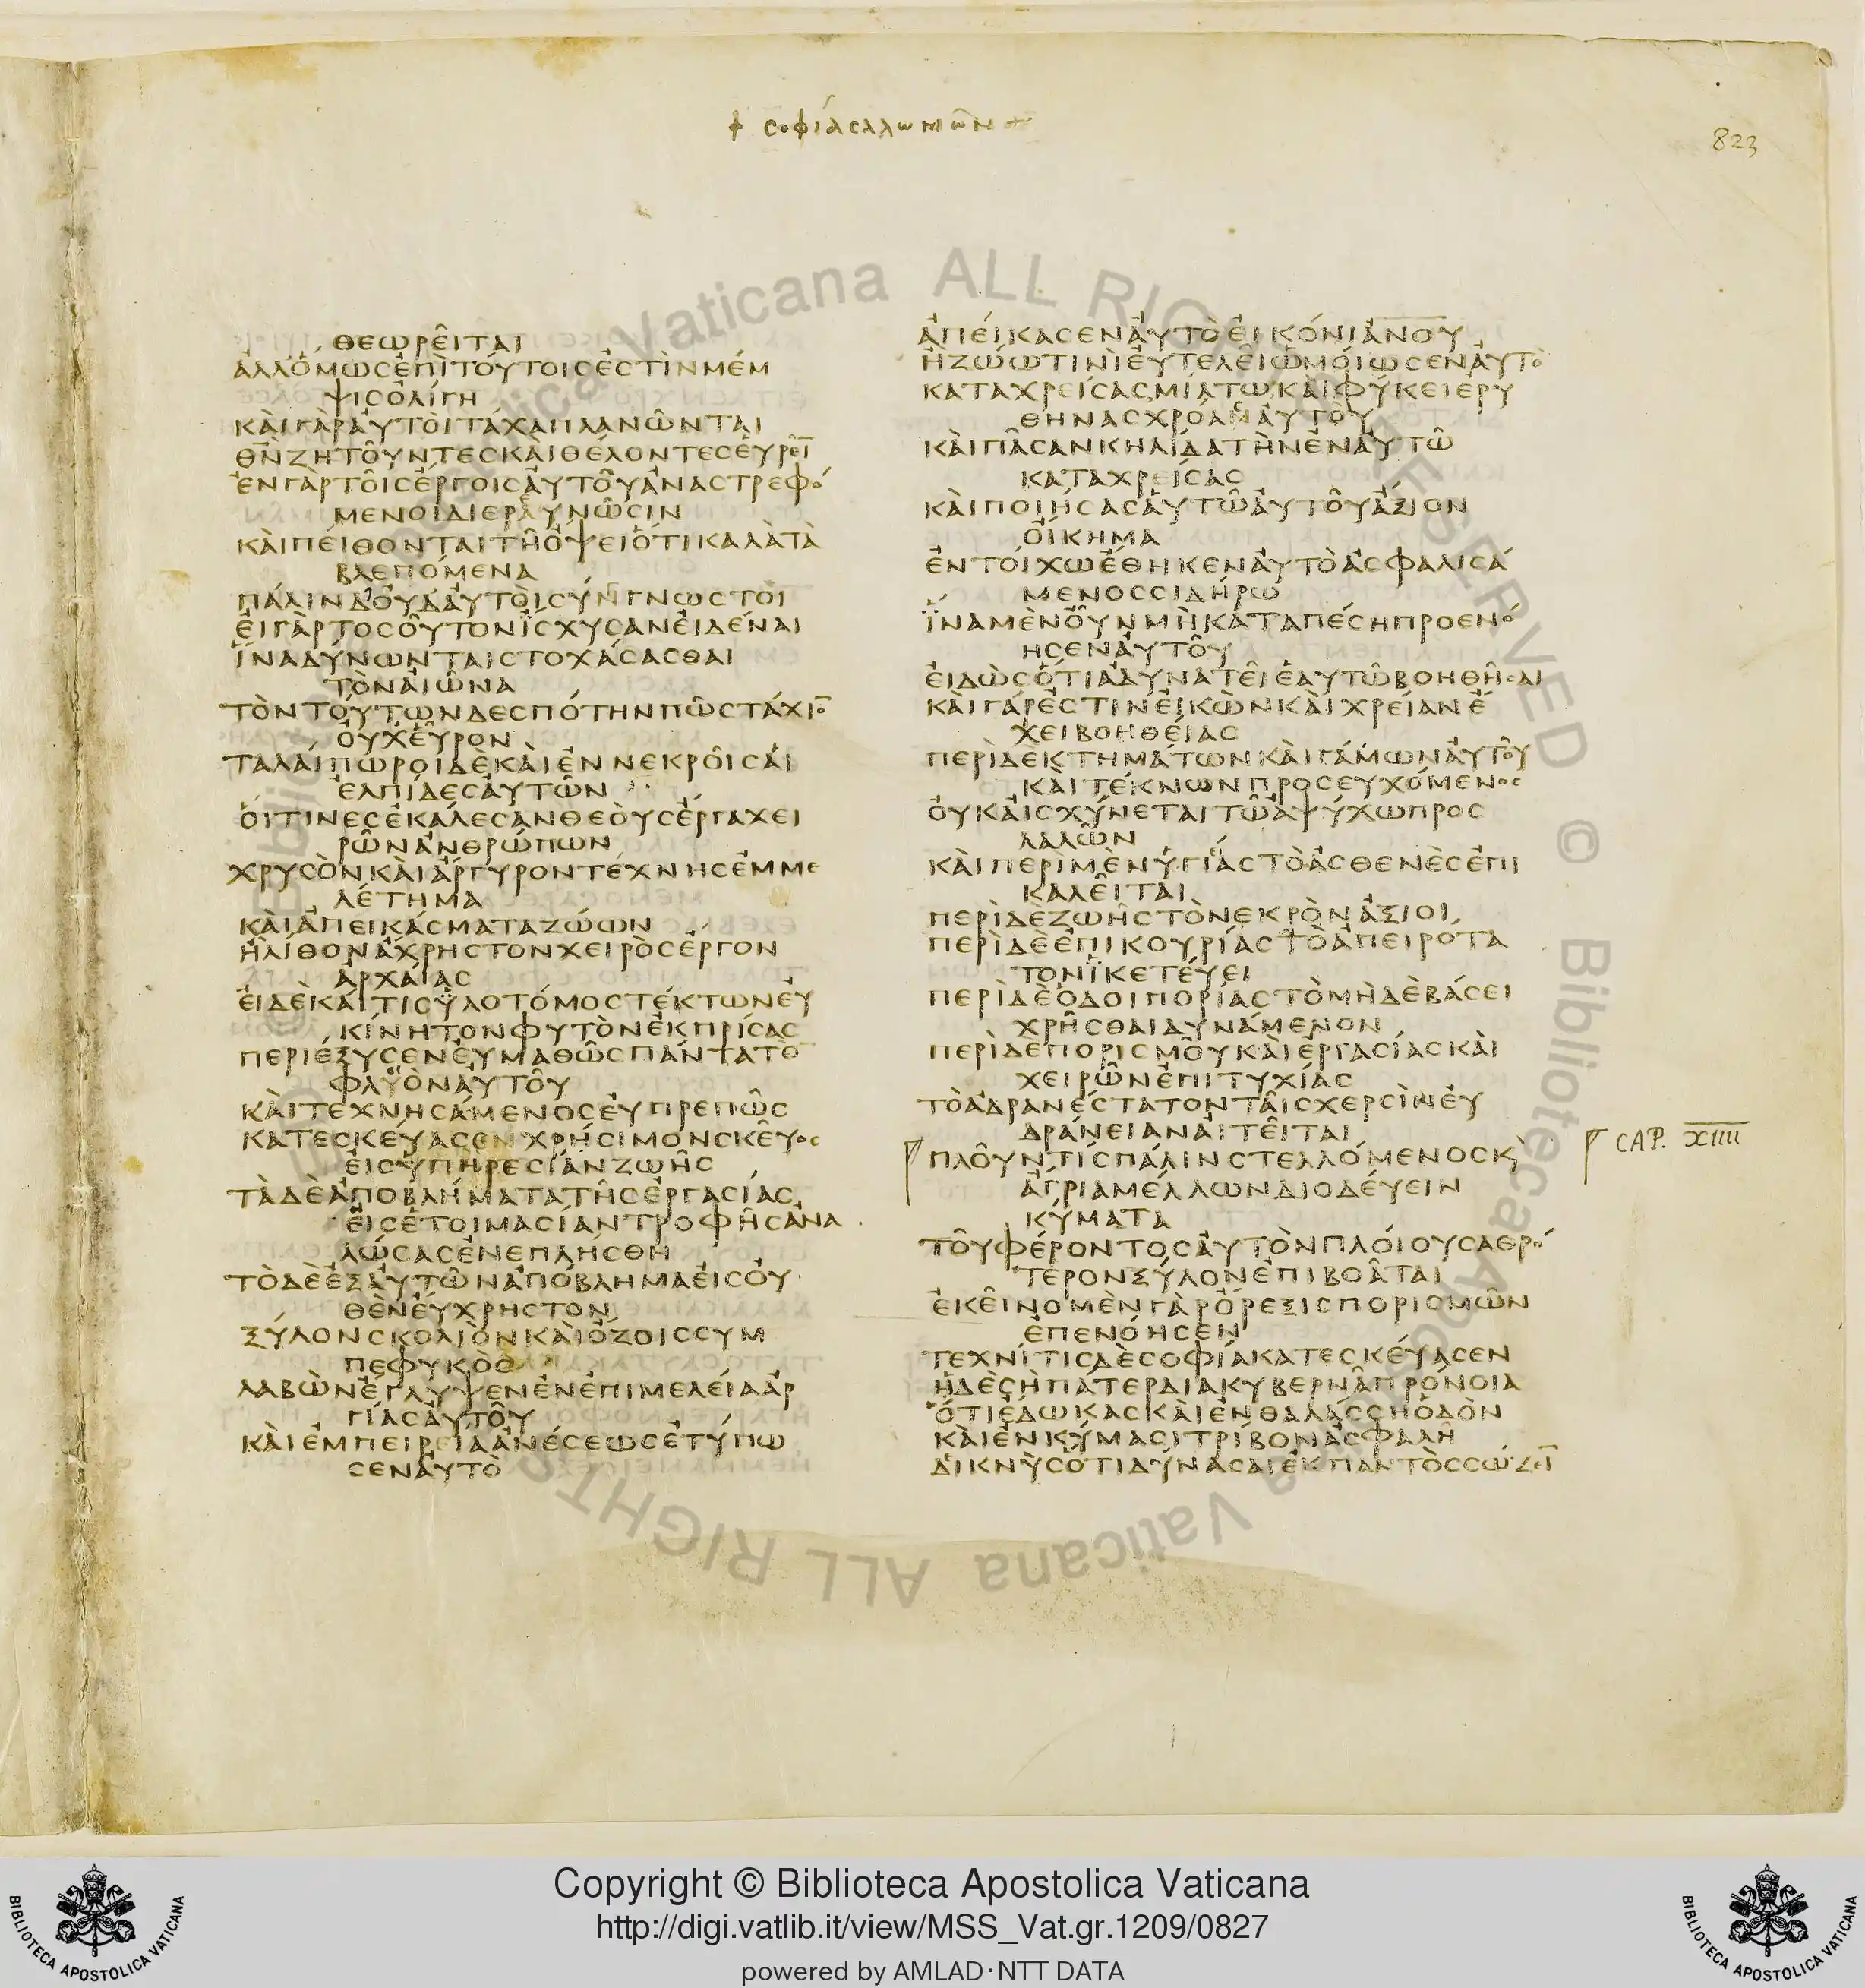 σοφίασαλωμῶν
823
θεωρεῖται
ἀλλ᾽ὅμωσἐπὶτούτοισἐστὶνμέμ
ψισὀλίγη
καὶγὰραὐτοὶτάχαπλανῶνται
θ̅ν̅ζητοῦντεσκαὶθέλοντεσεὑρεῖ̅
ἐνγὰρτοῖσἔργοισαὐτοῦἀναστρεφό
μενοιδιεραυνῶσιν
καὶπείθονταιτῆὄψειὅτικαλὰτὰ
βλεπόμενα
πάλινδ᾽οὐδ᾽αὐτοὶσυνγνωστοὶ
εἰγὰρτοσοῦτονἴσχυσανεἰδέναι
ἵναδύνωνταιστοχάσασθαι
τὸναἰῶνα
τὸντούτωνδεσπότηνπῶστάχιο̅
οὐχεὗρον
ταλαίπωροιδὲκαὶἐννεκροῖσαἱ
ἐλπίδεσαὐτῶν
οἵτινεσἐκάλεσανθεοὺσἔργαχει
ρῶνἀνθρώπων
χρυσὸνκαὶἄργυροντέχνησἐμμε
λέτημα
καὶἀπεικάσματαζώων
ἢλίθονἄχρηστονχειρὸσἔργον
ἀρχαίασ
εἰδὲκαίτισὑλοτόμοστέκτωνεὐ
κίνητονφυτὸνἐκπρίσασ
περιέξυσενεὐμαθῶσπάνταтὸ
φλυὸναὐτοῦ
καὶτεχνησάμενοσεὐπρεπῶσ
κατεσκεύασενχρήσιμονσκεῦοσ
εἰσὑπηρεσίανζωῆσ
τὰδὲἀποβλήματατῆσἐργασίασ
εἰσἑτοιμασίαντροφῆσἀνα
λώσασἐνεπλήσθη
τὸδὲἐξαὐτῶνἀπόβλημαεἰσοὐ
θὲνεὔχρηστον
ξύλονσκολιὸνκαὶὄζοισσυμ
πεφυκὸσ
λαβὼνἔγλυψενἐνἐπιμελείαἀρ
γίασαὐτοῦ
καὶἐμπειρείαἀνέσεωσἐτύπω
σεναὐτὸ
ἀπείκασεναὐτὸεἰκόνιἀνου
ἢζώωτινὶεὐτελεῖὡμοίωσεναὐτὸ
καταχρείσασμίλτωκαὶφύκειἐρυ
θηνασχρόαναὐτοῦ
καὶπᾶσανκηλίδατὴνἐναὐτῶ
καταχρείσασ
καὶποιήσασαὐτῶαὐτοῦἄξιον
οἴκημα
ἐντοίχωἔθηκεναὐτὸἀσφαλισά
μενοσσιδήρω
ἵναμὲνοὖνμὴκαταπέσηπροενό
ησεναὐτοῦ
εἰδὼσὅτιἀδυνατεῖἑαυτῶβοηθῆσαι
καὶγάρἐστινεἰκὼνκαὶχρείανἔ
χειβοηθείασ
περὶδὲκτημάτωνκαὶγάμωναὐτοῦ
καὶτέκνωνπροσευχόμενοσ
οὐκαἰσχύνεταιτῶἀψύχωπροσ
λαλῶν
καὶπερὶμὲνὑγιείαστὸἀσθενὲσἐπι
καλεῖται
περὶδὲζωῆστὸνεκρὸνἀξιοῖ
περὶδὲἐπικουρίαστὸἀπειρότα
τονἱκετεύει
περὶδὲὁδοιπορίαστὸμηδὲβάσει
χρῆσθαιδυνάμενον
περὶδὲπορισμοῦκαὶἐργασίασκαὶ
χειρῶνἐπιτυχίασ
τὸἀδρανέστατονταῖσχερσὶνεὐ
δράνειαναἰτεῖται
CAP. XIIII
πλοῦντισπάλινστελλόμενοσκ̀
ἄγριαμέλλωνδιοδεύειν
κύματα
τοῦφέροντοσαὐτὸνπλοίουσαθρό
τερονξύλονἐπιβοᾶται
ἐκεῖνομὲνγὰρὄρεξισπορισμῶν
ἐπενόησεν
τεχνίτισδὲσοφίακατεσκεύασεν
ἡδὲσὴπάτερδιακυβερνᾶπρόνοια
ὅτιἔδωκασκαὶἐνθαλάσσηὁδὸν
καὶἐνκύμασιτρίβονἀσφαλῆ
δικνὺσὅτιδύνασαιἐκπαντὸσσώζει̅
ALL RIGHTS RESERVED © Biblioteca Apostolica Vaticana
Copyright © Biblioteca Apostolica Vaticana
http://digi.vatlib.it/view/MSS_Vat.gr.1209/0827
powered by AMLAD·NTT DATA
BIBLIOTECA APOSTOLICA VATICANA
BIBLIOTECA APOSTOLICA VATICANA